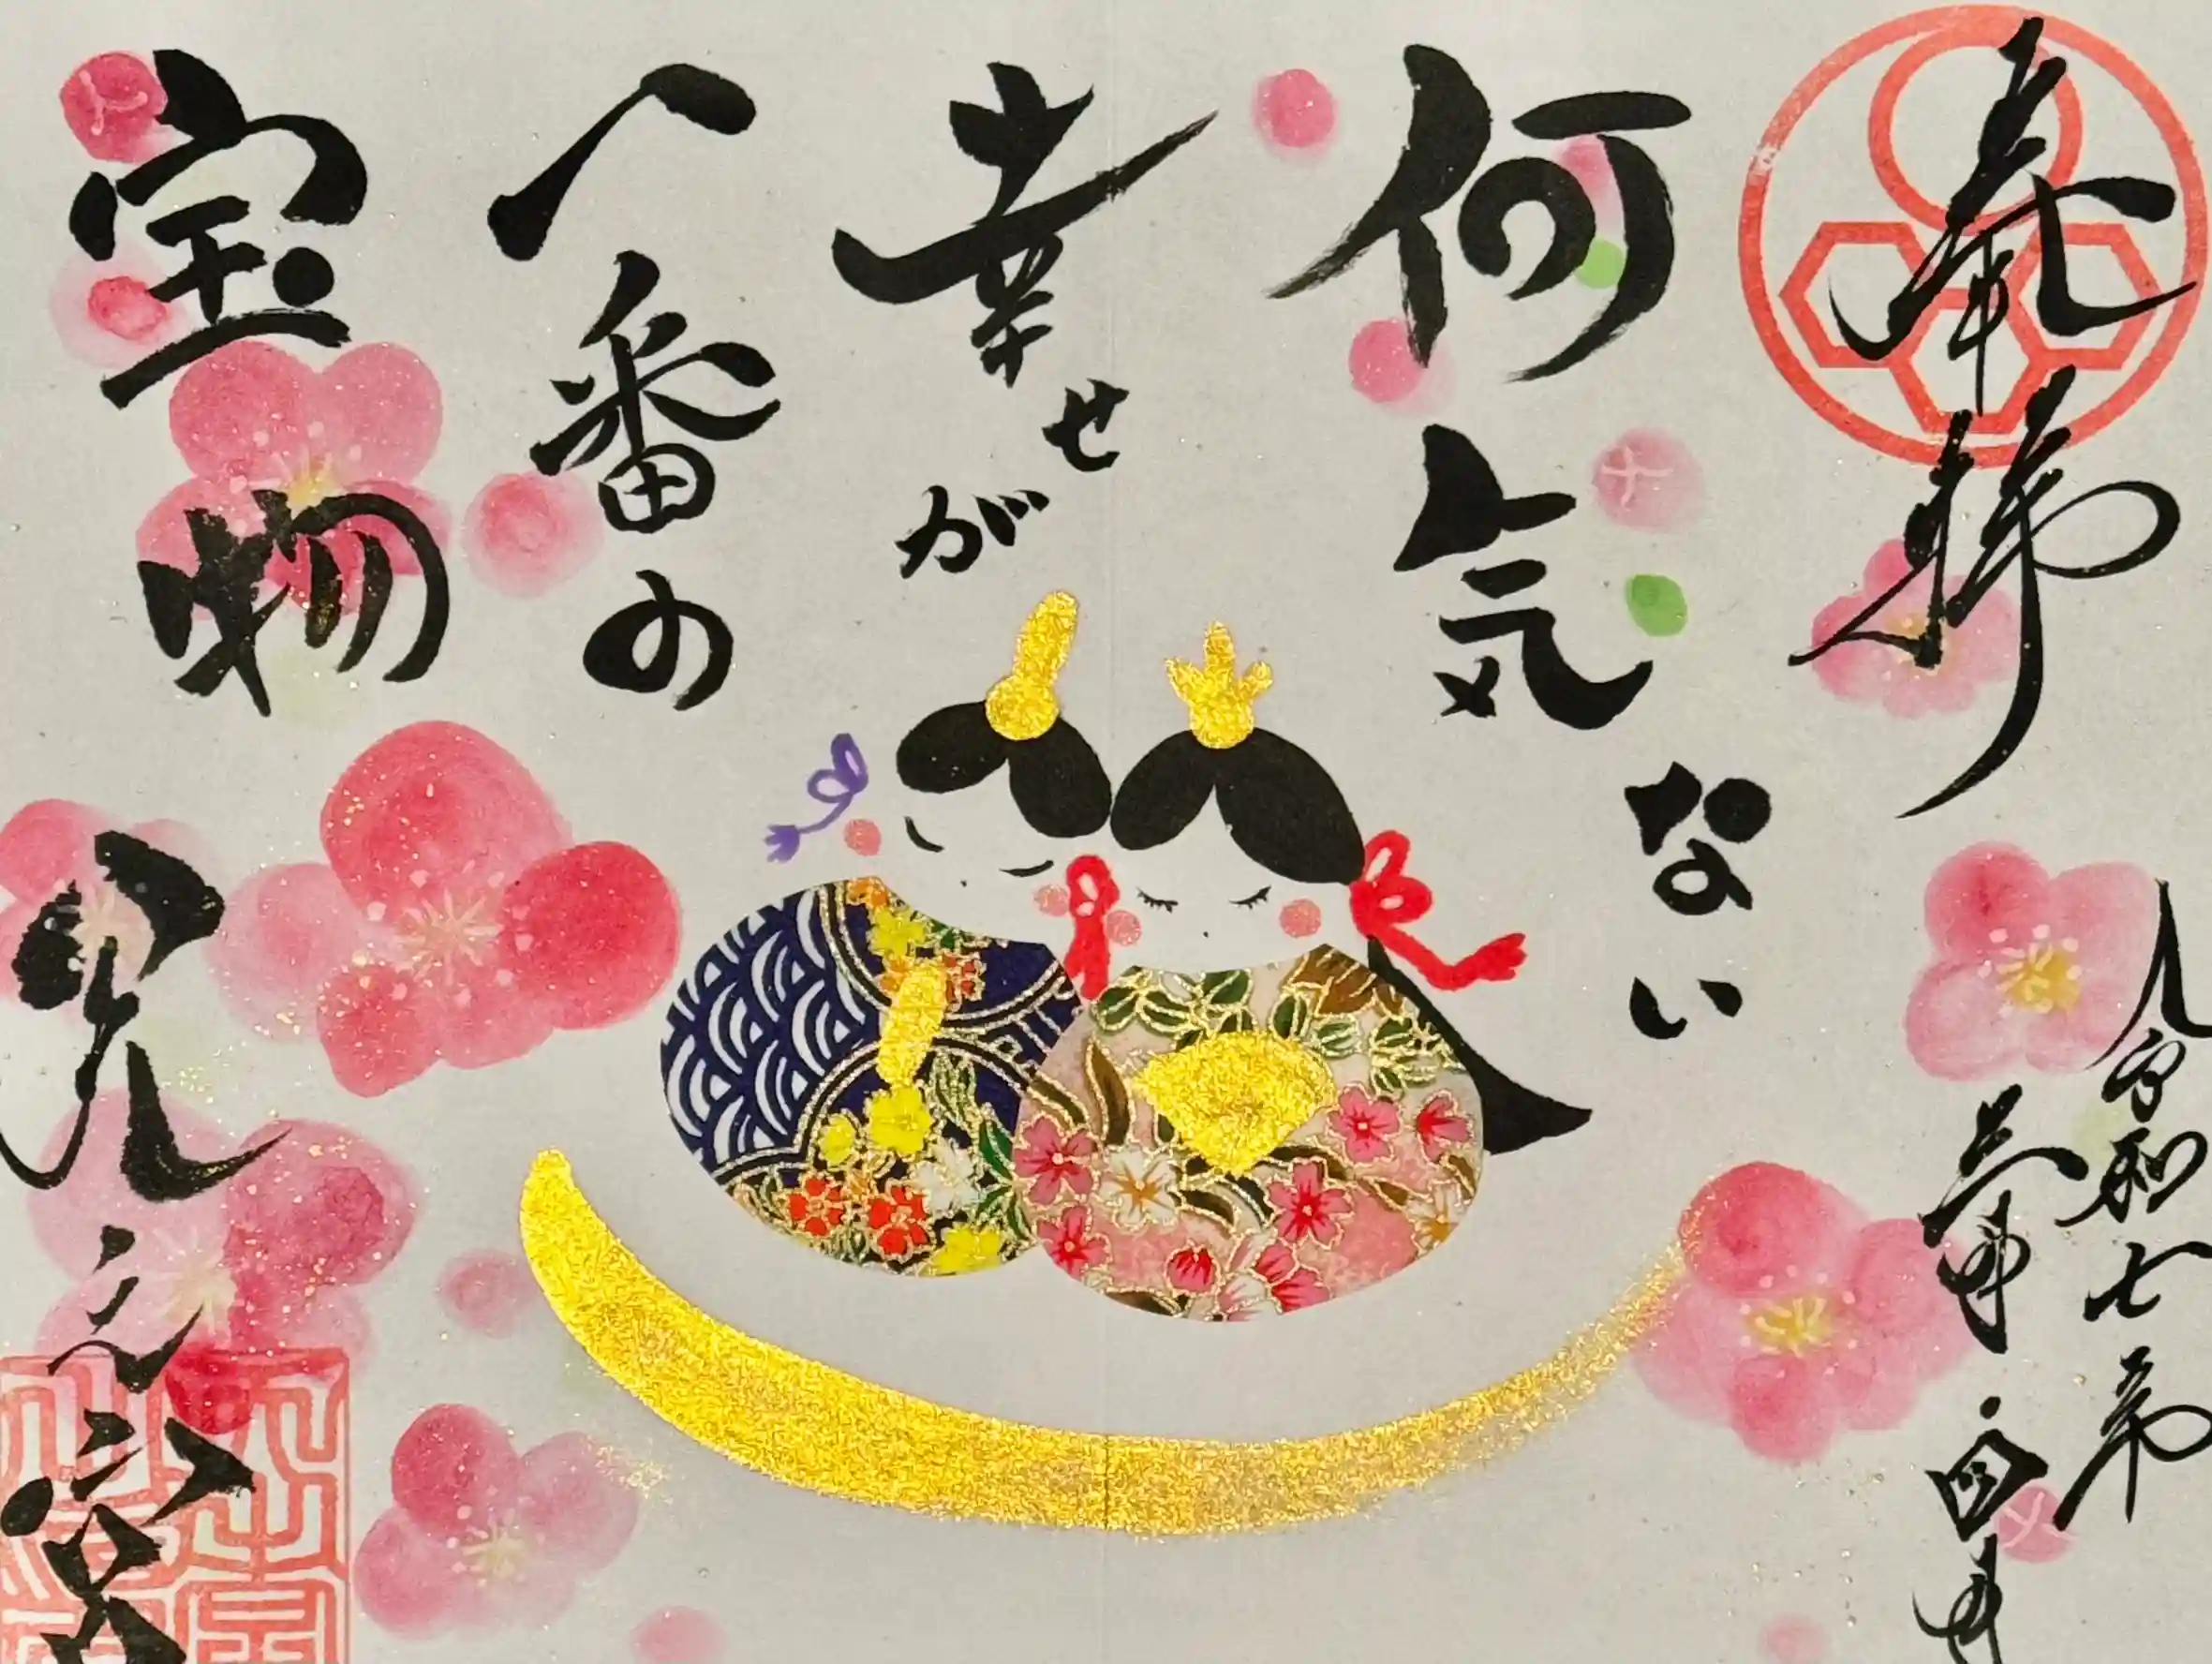 奉拝
令和七年
三月
何気ない
幸せが
一番の
宝物
見之宮